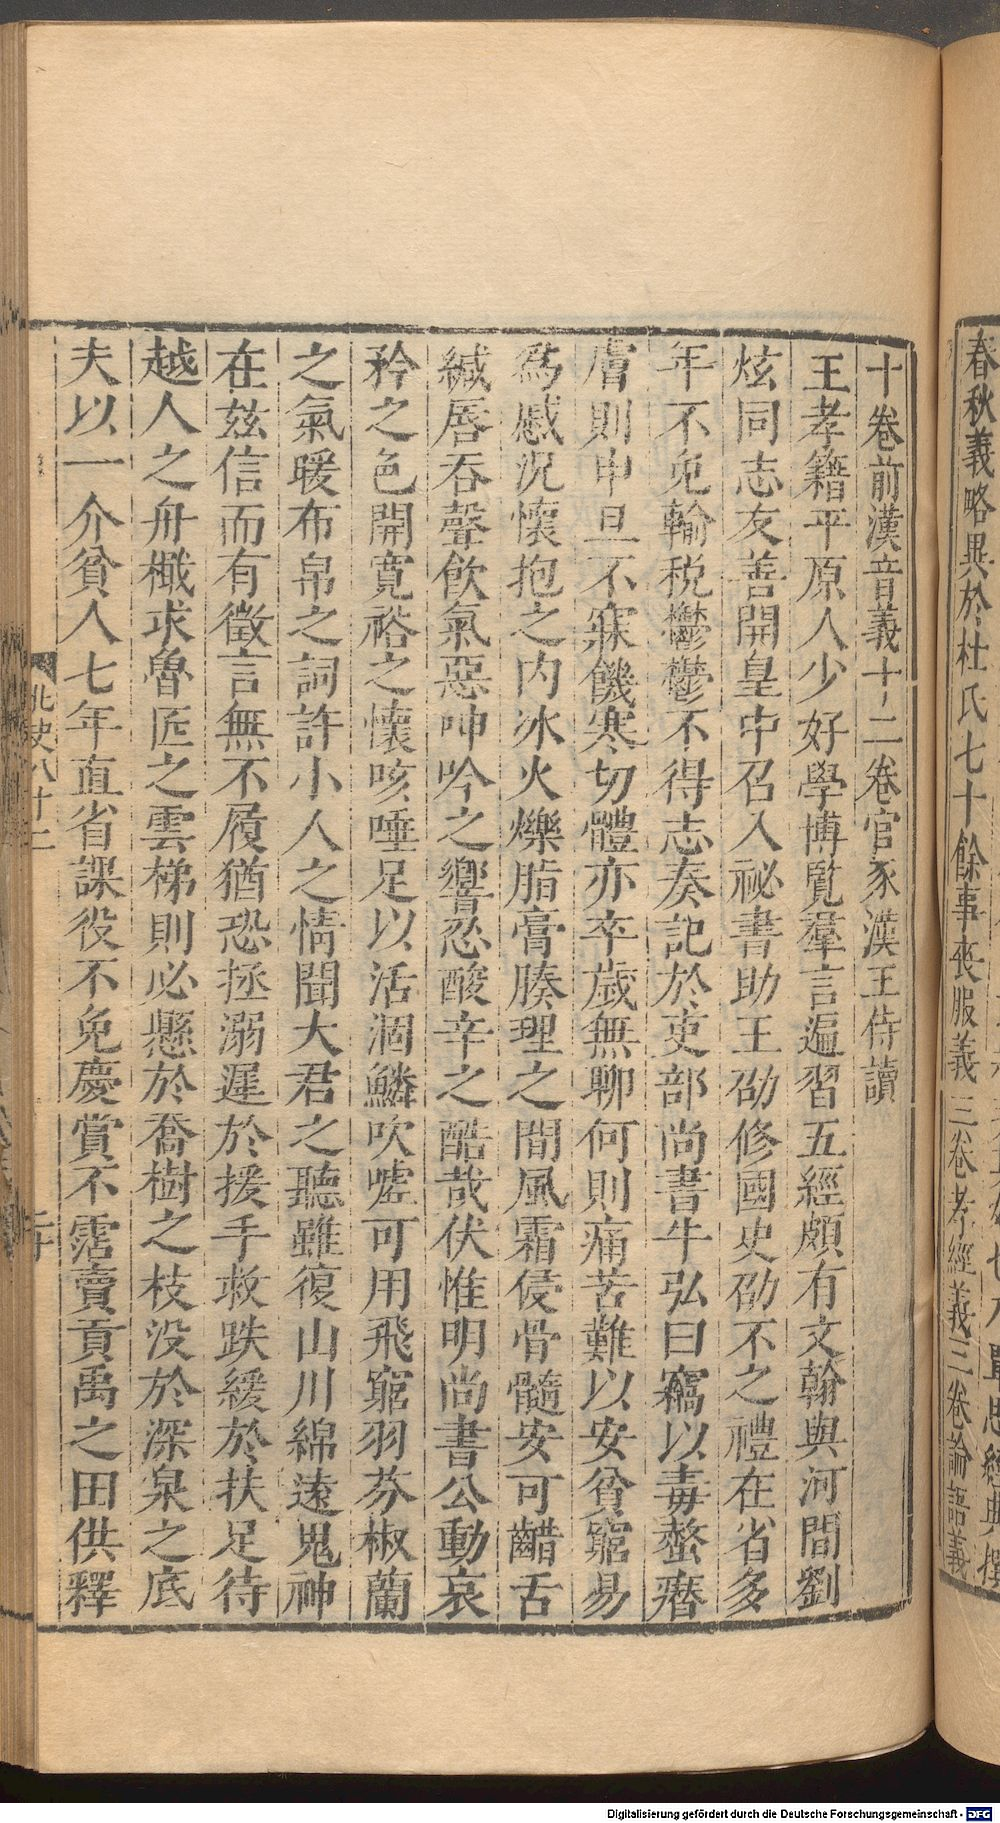 春秋義略異於杜氏七十餘事喪服義三卷孝經義三卷論語義
十卷前漢音義十二卷官豕漢王侍讀
王孝籍平原人少好學博覽羣言遍習五經頗有文翰與河間劉
炫同志友善開皇中召入祕書助王劭修國史劭不之禮在省多
年不免輸税鬱鬱不得志奏記於吏部尚書牛弘曰竊以毒螫㿊
膚則申旦不寐饑寒切體亦卒歲無聊何則痛苦難以安貧窮易
爲慼况懷抱之内冰火爍脂膏腠理之間風霜侵骨髓安可齰舌
緘唇吞聲飲氣惡呻吟之響忍酸辛之酷哉伏惟明尚書公動哀
矜之色開寬裕之懷咳唾足以活涸鱗吹嘘可用飛窮羽芬椒蘭
之氣暖布帛之詞許小人之情聞大君之聽雖復山川綿遠鬼神
在玆信而有徵言無不履猶恐拯溺遲於援手救跌緩於扶足待
越人之舟檝求魯匠之雲梯則必懸於喬樹之枝没於深泉之底
夫以一介貧人七年直省課役不免慶賞不霑賣貢禹之田供釋
北史八十二
二十
Digitalisierung gefördert durch die Deutsche Forschungsgemeinschaft - DFG